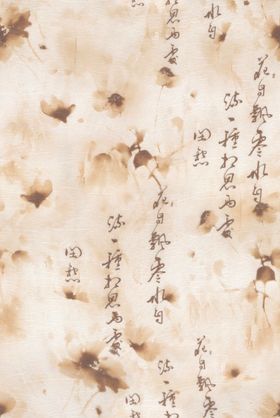 水自
思兩處
花自飄零水自
流一種相思兩處
閒愁
花自飄零水自
流一種相思兩處
閒愁
花自飄零
流一種相
閒愁